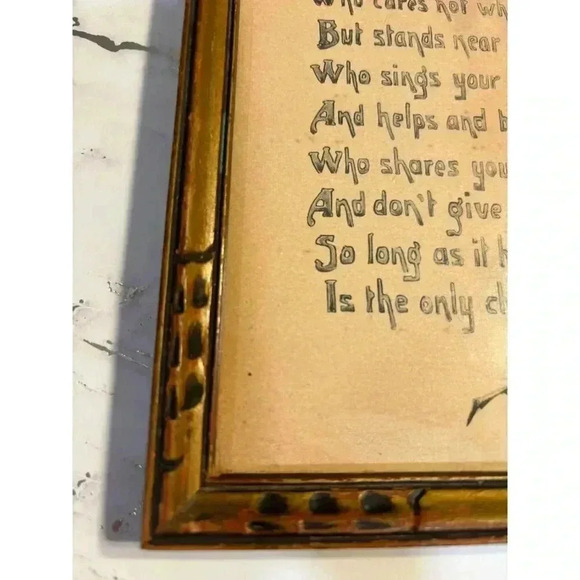 Who cares not wh
But stands near
Who sings your
And helps and b
Who shares you
And don't give
So long as it h
Is the only c